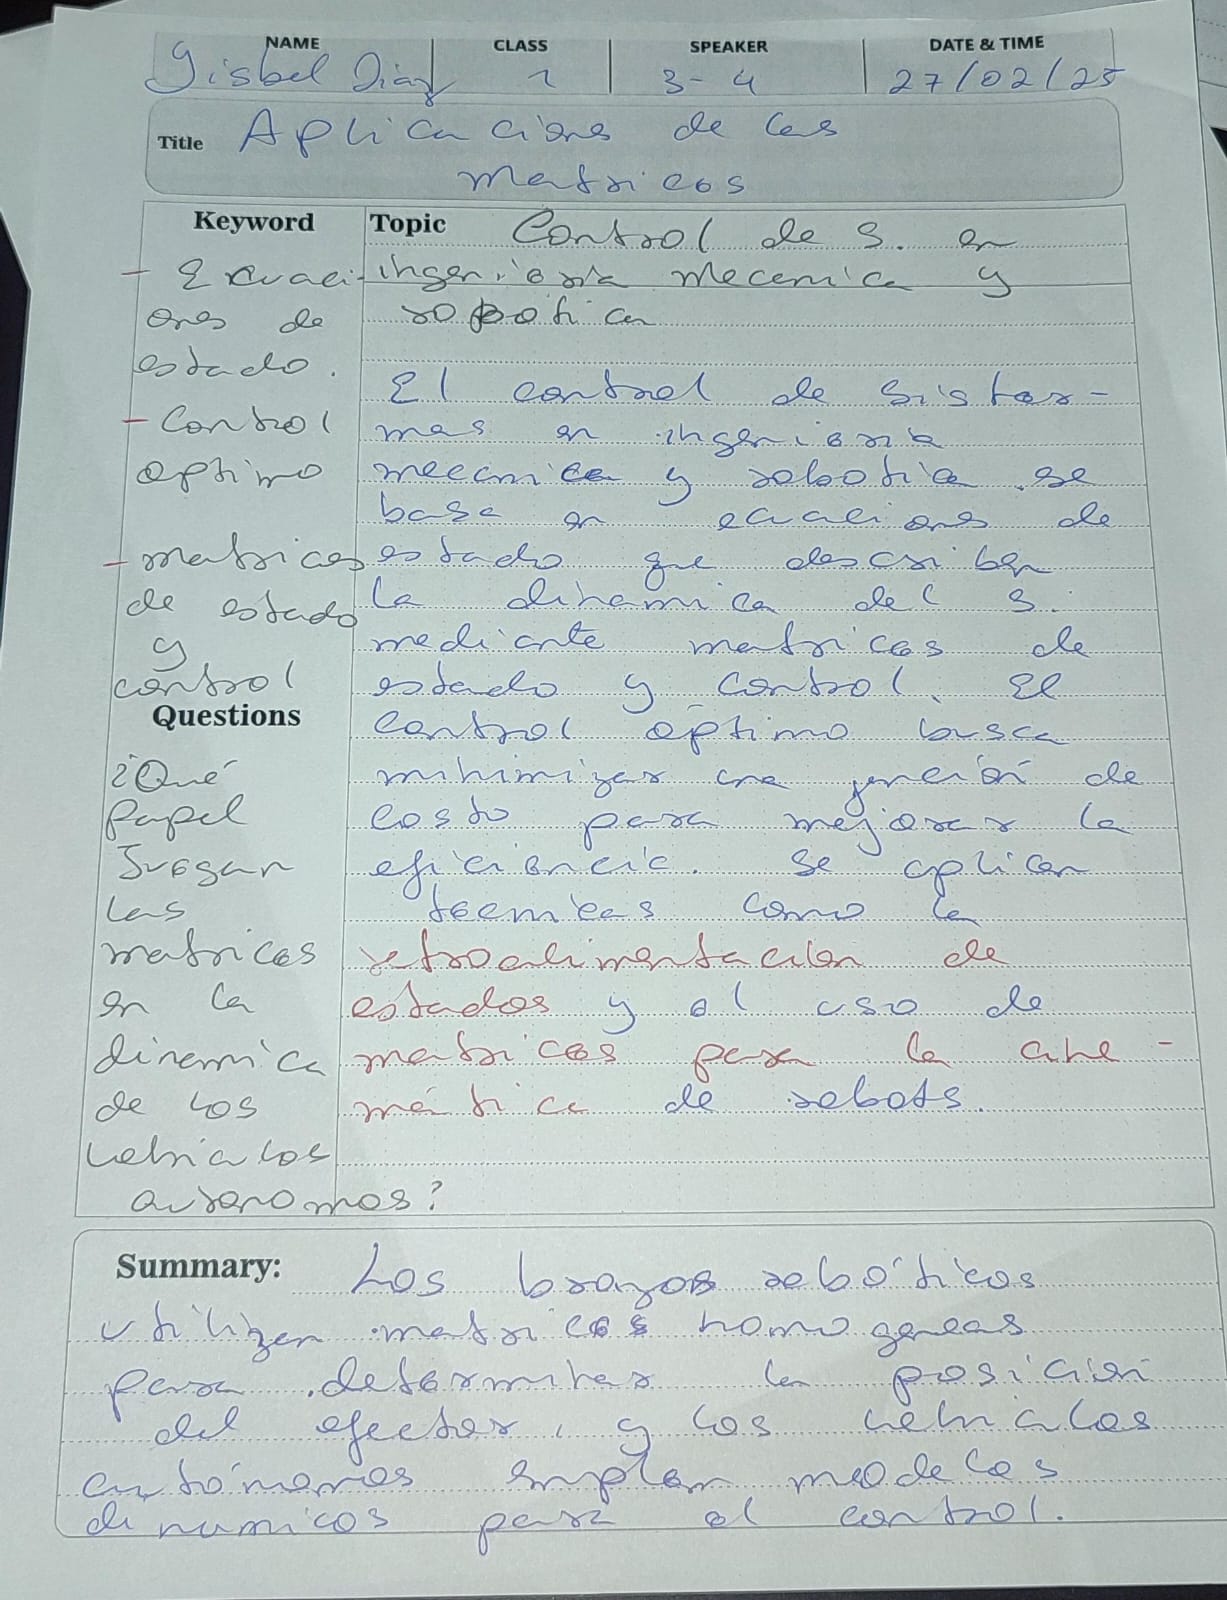 NAME CLASS SPEAKER DATE & TIME
Yisbel Diaz 2 3-4 27/02/25
Title Aplicaciones de las
matrices
Keyword
- Ecuaci-
ones de
estado.
- Control
optimo
- matrices
de estado
y
control
Questions
¿Qué
Papel
Juegan
las
matrices
en la
dinamica
de los
vehiculos
autonomos?
Topic Control de s. en
ingenieria mecanica y
robotica
El control de siste-
mas en ingenieria
mecanica y robotica se
basa en ecuaciones de
estado que describen
la dinamica del s.
mediante matrices de
estado y control. El
control optimo busca
minimizar una función de
costo para mejorar la
eficiencia. Se aplican
tecnicas como la
retroalimentación de
estados y el uso de
matrices para la cine-
mática de robots.
Summary: Los brazos robóticos
utilizan matrices homogeneas
para determinar la posición
del efector, y los vehiculos
autónomos emplean modelos
dinamicos para el control.